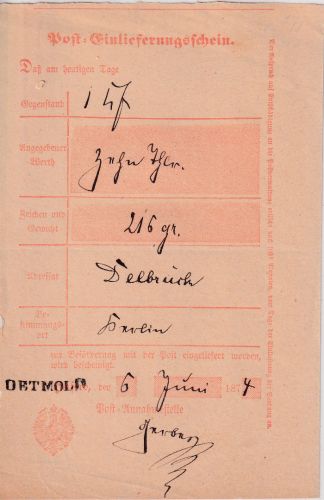 Post-Einlieferungsschein.
Daß am heutigen Tage
Gegenstand 1
Angegebener Werth Zehn Thlr.
Zeichen und Gewicht 216 gr.
Adressat Delbrück
Bestimmungsort Berlin
zur Beförderung mit der Post eingeliefert worden,
wird bescheinigt.
DETMOLD den 6 Juni 1874
Post-Annahmestelle
Gerber